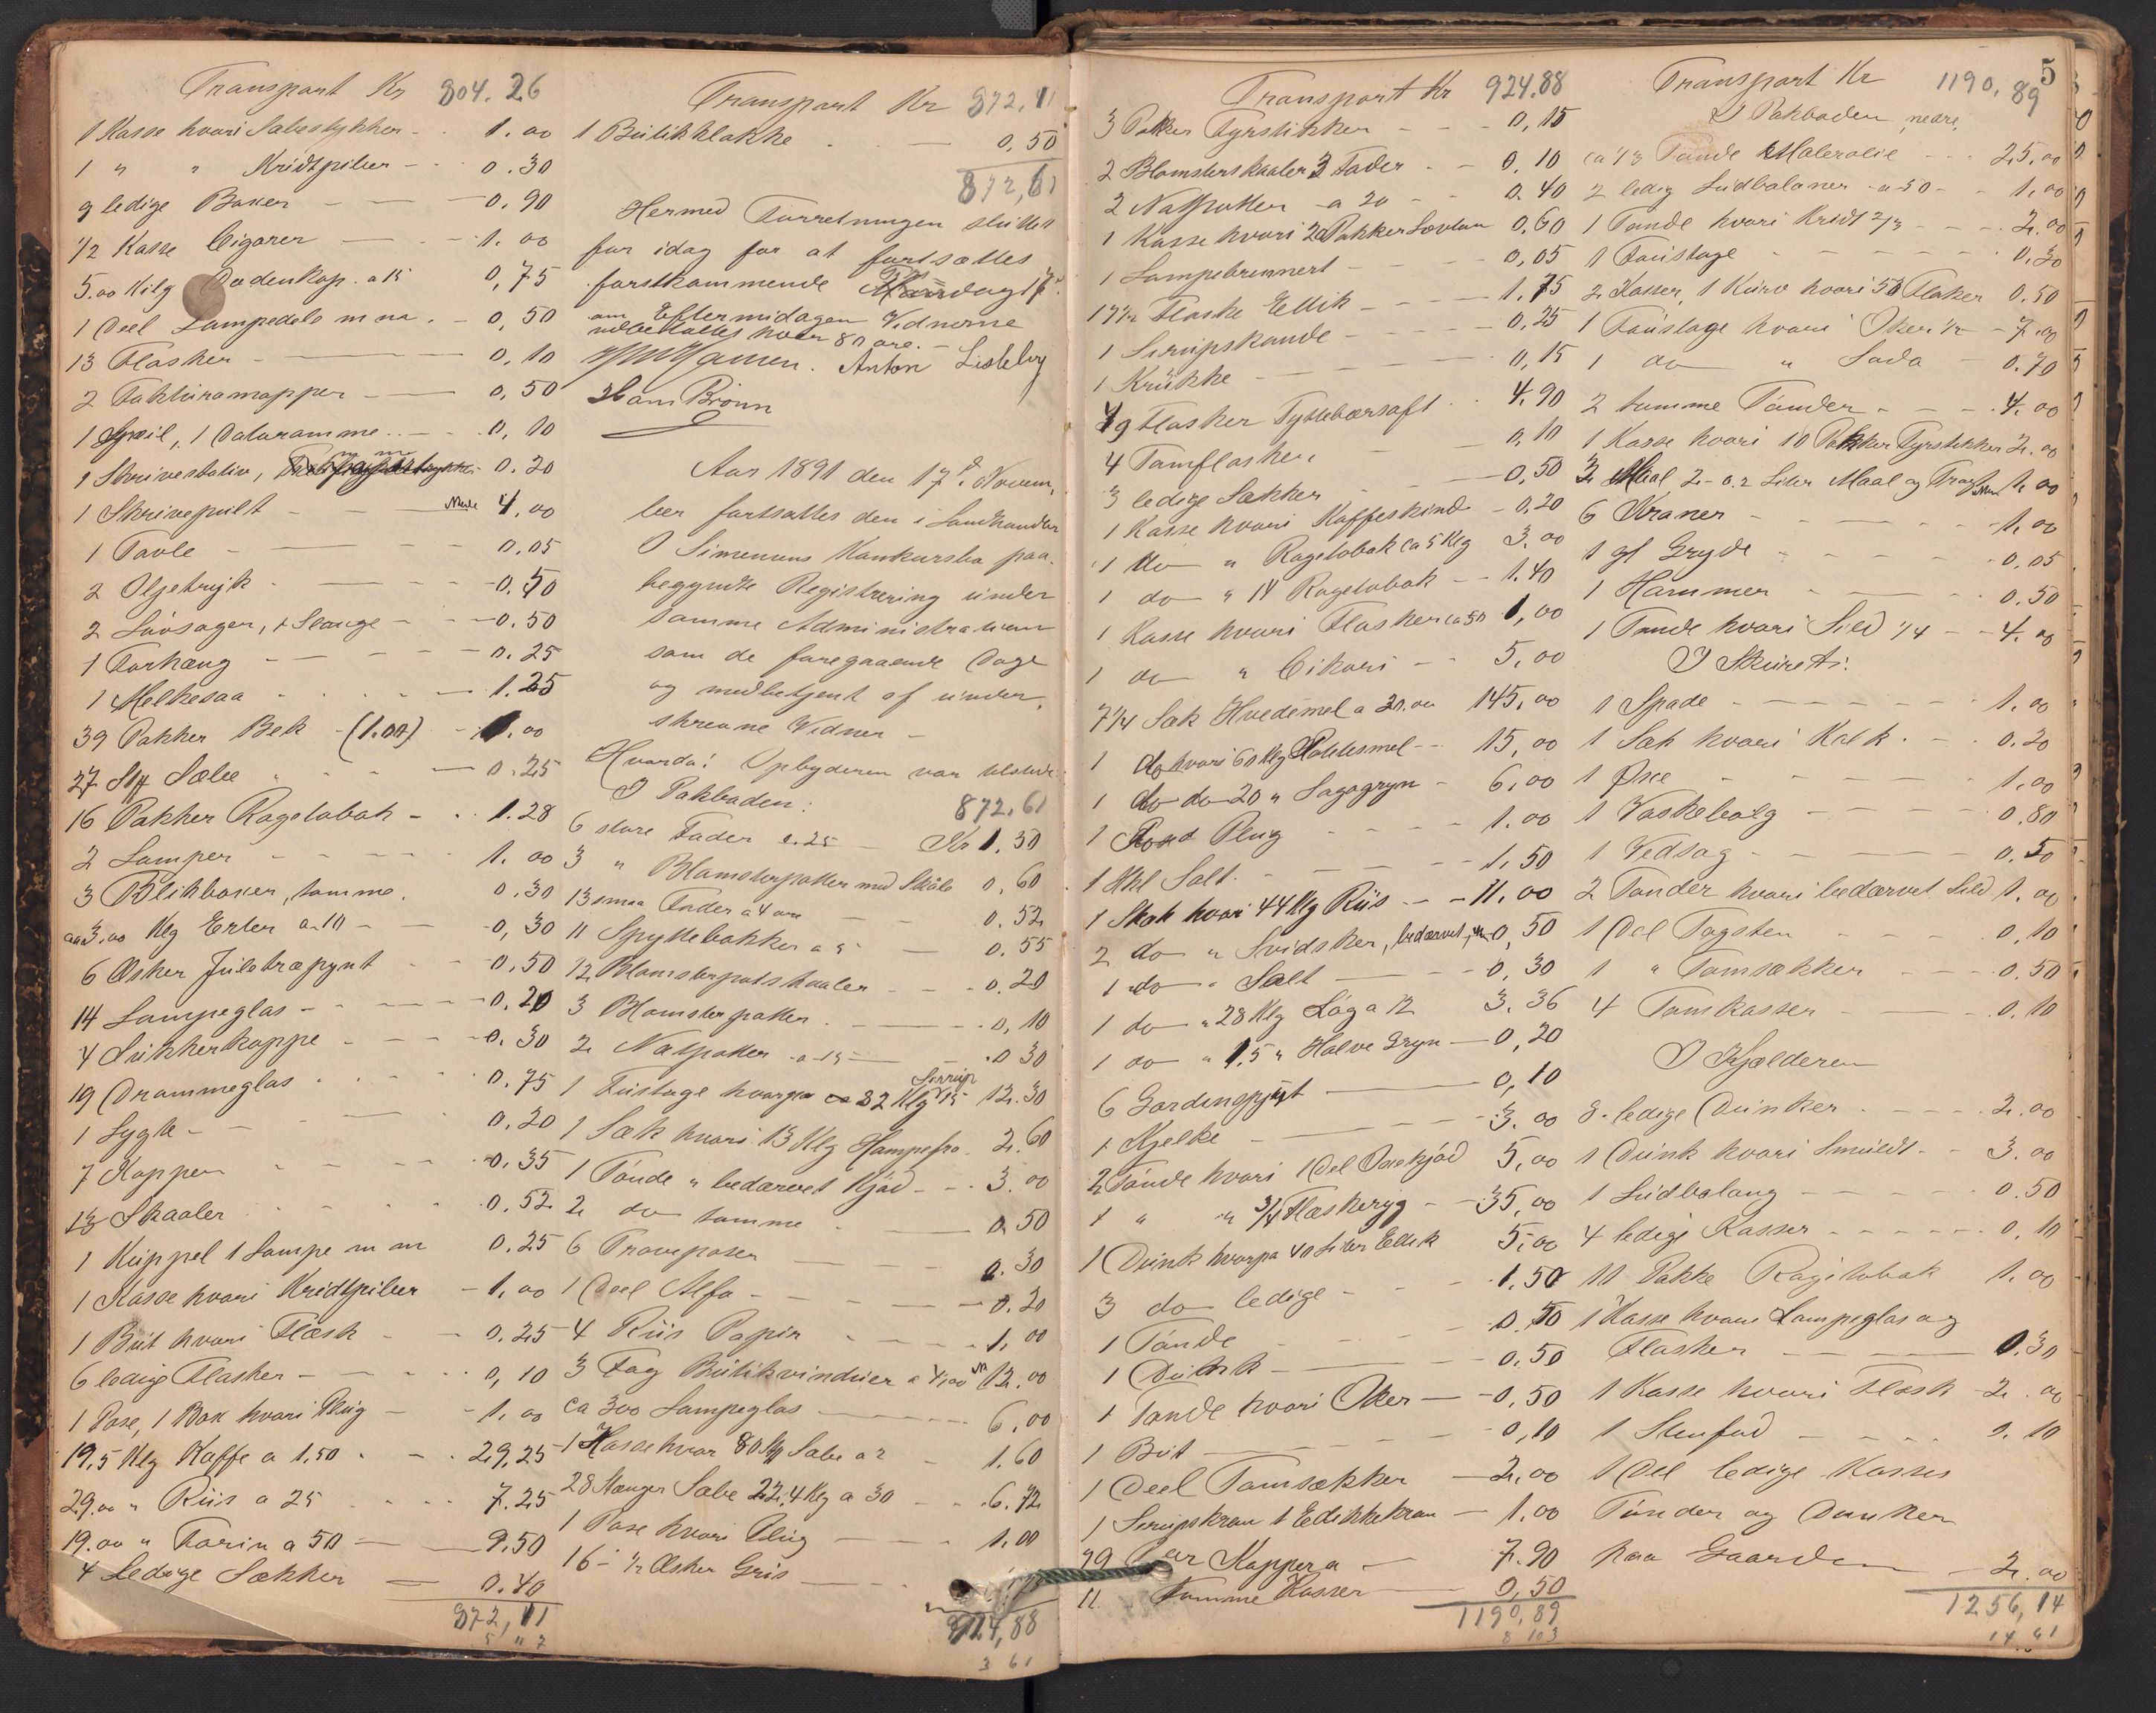 Transport Kr 804.26
1 Kasse hvori Sæbestykker 1.00
1 " " Kridtpiber 0.30
9 ledige Boxer 0.90
1/2 Kasse Cigarer 1.00
5.00 Kilg a 15 0,75
1 Deel Lampedele m m. 0,50
13 Flasker 0.10
2 Fakturamapper 0,50
1 Speil, 1 Dataramme 0,10
1 Skrivestativ, m m 0.20
1 Skrivepult 4,00
1 Tavle 0.05
2 Oljetryk 0.50
2 Løvsager, 1 Slange 0.50
1 Forhæng 0.25
1 Melkesaa 1.25
39 Pakker Bek (1.00) 1.00
27 Stk Sæbe 0.25
16 Pakker Ragetobak 1.28
2 Lamper 1.00
3 Blikboxer, tomme. 0.30
3,00 Klg Erter a 10 0,30
6 Æsker Juletræpynt 0.50
14 Lampeglas 0.20
4 Sukkerkoppe 0.30
19 Drammeglas 0.75
1 Lygte 0.20
7 Kopper 0.35
13 Skaaler 0.52
1 Kuppel 1 Lampe m m 0.25
1 Kasse hvori Kridtpiber 1,00
1 Bøt hvori Flesk 0.25
6 ledige Flasker 0,10
1 Pose, 1 Box hvori Plug 1,00
19,5 Klg Kaffe a 1,50 29,25
29.00 " Riis a 25 7.25
19.00 " Farin a 50 9.50
4 Ledige Sækker 0.40
872,11
Transport Kr 872,11
1 Butikklokke 0,50
872,61
Hermed Forretningen sluttet
for idag for at fortsættes
førstkommende 17de
om Eftermidagen Vidnerne
udbetaltes hver 80 øre.
Anton Lisleby
Hans Brønn
Aar 1891 den 17de Novem,
ber fortsattes den i Landhandler
O Simensens Konkursbo paa-
begyndte Registrering under
samme Administration
som de foregaaende Dage
og medbetjent af under,
skrevne Vidner
Hvorda! Opbyderen var tilstede
I Pakboden: 872.61
6 store Fader a.25 Kr 1.50
3 " Blomsterpotter med Skåle 0,60
13 smaa Fader a 4 øre 0.52
11 Spyttebakker a 5 0.55
12 Blomsterpotskaaler 0.20
3 Blomsterpotter 0,10
2 Natpotter a 15 0 30
1 Fustage hvorpaa ca 82 Klg Sirup 15 12.30
1 Sæk hvori 13 Klg Hampefrø 2.60
1 Tønde " bedærvet Kjød 3.00
2 do tomme 0.50
6 Prøveposer 0.30
1 Deel Alfa 0.20
4 Riis Papir 1,00
3 Fag Butikvinduer a 4,00 12.00
ca 300 Lampeglas 6,00
1 Kasse hvor 80 Stk Sæbe a 2 1.60
28 Stænger Sæbe 22,4 Klg a 30 6.72
1 Pose hvori Plug 1.00
16 - 1/2 Æsker Gris
924,88
3 61
Transport Kr 924.88
3 Pakker Fyrstikker 0,15
2 Blomsterskaaler 3 Fader 0,10
2 Natpotter a 20 0.40
1 Kasse hvori 20 Pakker 0,60
1 Lampebrennert 0,05
17 1/2 Flaske Edik 1.75
1 Sirupskande 0,25
1 Krukke 0,15
49 Flasker Tyttebærsaft 4.90
4 Tomflasker 0,10
3 ledige Sækker 0,50
1 Kasse hvori Kaffeskind 0,20
1 do " Ragetobak ca 5 Klg 3.00
1 do " 14 Ragetobak 1.40
1 Kasse hvori Flasker ca 50 1,00
1 do " Cikori 5,00
7 1/4 Sæk Hvedemel a 20.00 145,00
1 do hvori 60 Klg Potetesmel 15,00
1 do do 20 " Sagogryn 6,00
1 Plug 1.00
1 Hkl Salt. 1,50
1 Sæk hvori 44 Klg Riis 11,00
2 do " Svidsker, bedærvet 0,50
1 do " Salt 0,30
1 do " 28 Klg Løg a 12 3.36
1 do " 1.5 " Halve Gryn 0,20
6 Gardinpynt 0,10
1 Kjelke 3.00
2 Tønde hvori 1 Del Oxekjød 5,00
1 " " 3/4 Fleskeryg 35,00
1 Dunk hvorpaa 40 Liter Edik 5,00
3 do ledige 1.50
1 Tønde 0.50
1 Dunk 0,50
1 Tønde hvori Oker 0,50
1 Bøt 0,10
1 Deel Tomsækker 2,00
1 Sirupskran 1 Edikkekran 1.00
79 Par Kopper a 7.90
11 Tomme Kasser 0.50
1190.89
8 103
5
Transport Kr 1190.89
I Pakboden nedre,
ca 1/3 Tønde Malerolie 25.00
2 ledig Sildbalaner a 50 1.00
1 Tønde hvori Kridt 2/3 2.00
1 Fustage 0.30
2 Kasser, 1 Kurv hvori 50 Flaker 0.50
1 Fustage hvori Oker 1/2 7.00
1 do " Soda 0.70
2 tomme Tønder 4.00
1 Kasse hvori 10 Pakker Fyrstikker 2.00
Maal, 2 - 0.2 Liter Maal og Tragt 1.00
6 Kraner 1.00
1 gl Gryde 0,05
1 Hammer 0.50
1 Tønde hvori Sild 1/4 4.00
I Skuret:
1 Spade 1.00
1 Sæk hvori Kalk. 0.20
1 Øxe 1.00
1 Vaskebalg 0.80
1 Vedsag 0.50
2 Tønder hvori bedærvet Sild 1.00
1 Del Tagsten 0,10
1 " Tomsækker 0.50
4 Tomkasser 0.10
I Kjælderen
8 ledige Dunker 2.00
1 Dunk hvori Smuldt. 3.00
1 Sildbalang 0.50
4 ledige Kasser 0,10
10 Pakke Ragetobak 1.00
1 Kasse hvori Lampeglas og
Flasker 0.30
1 Kasse hvori Flesk 2.00
1 Stenfad 0.10
1 Del ledige Kasser
Tønder og Dunker
paa Gaarden 2.00
1256,14